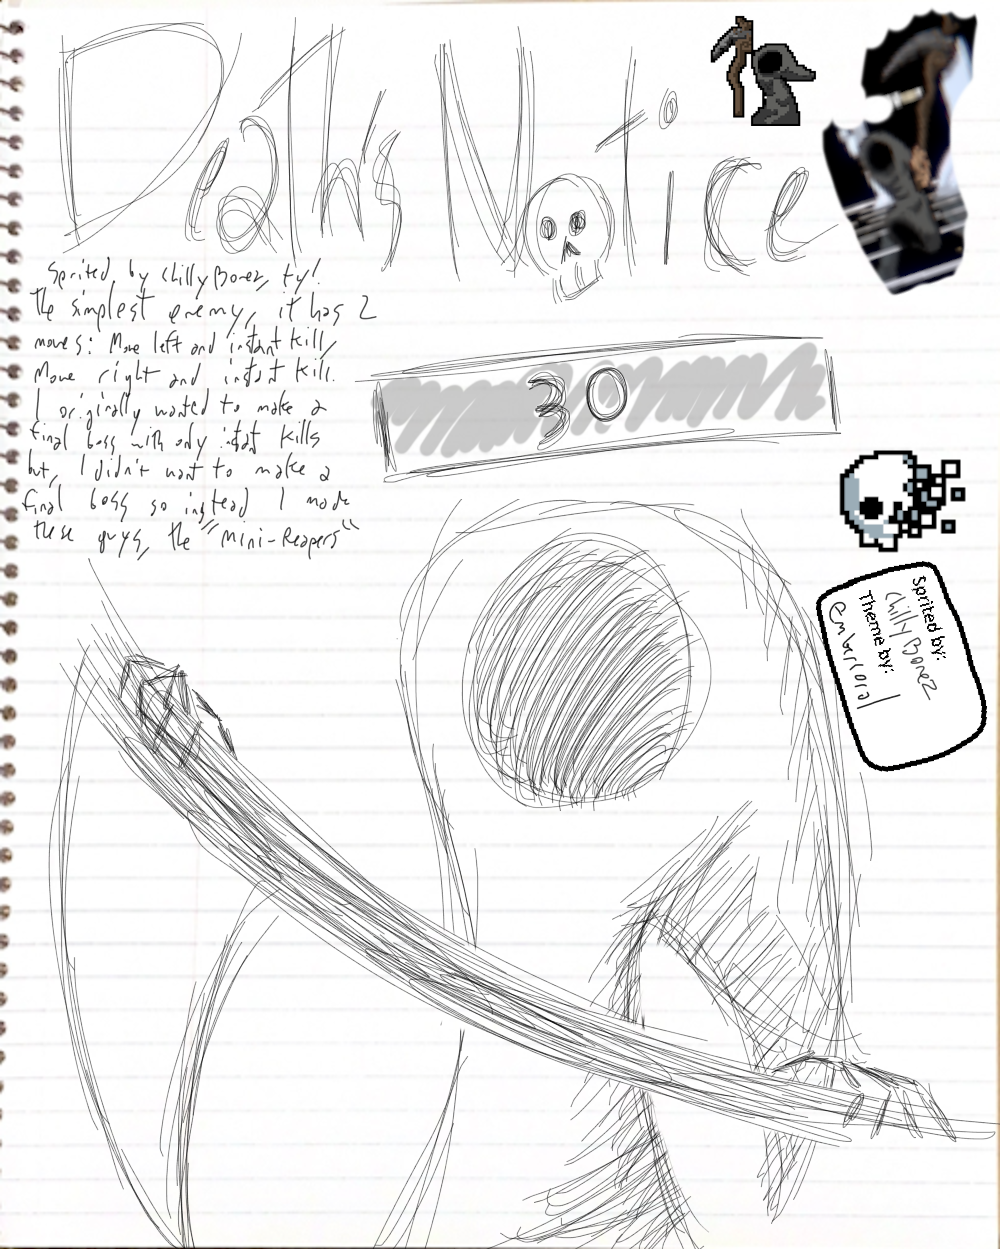 Death's Notice
Sprited by ChillyBonez, ty!
The simplest enemy, it has 2
moves: Move left and instant kill,
Move right and instant kill.
I originally wanted to make a
final boss with only instant kills
but, I didn't want to make a
final boss so instead I made
these guys, the "Mini-Reapers"
30
Sprited by:
ChillyBonez
Theme by:
embercoral